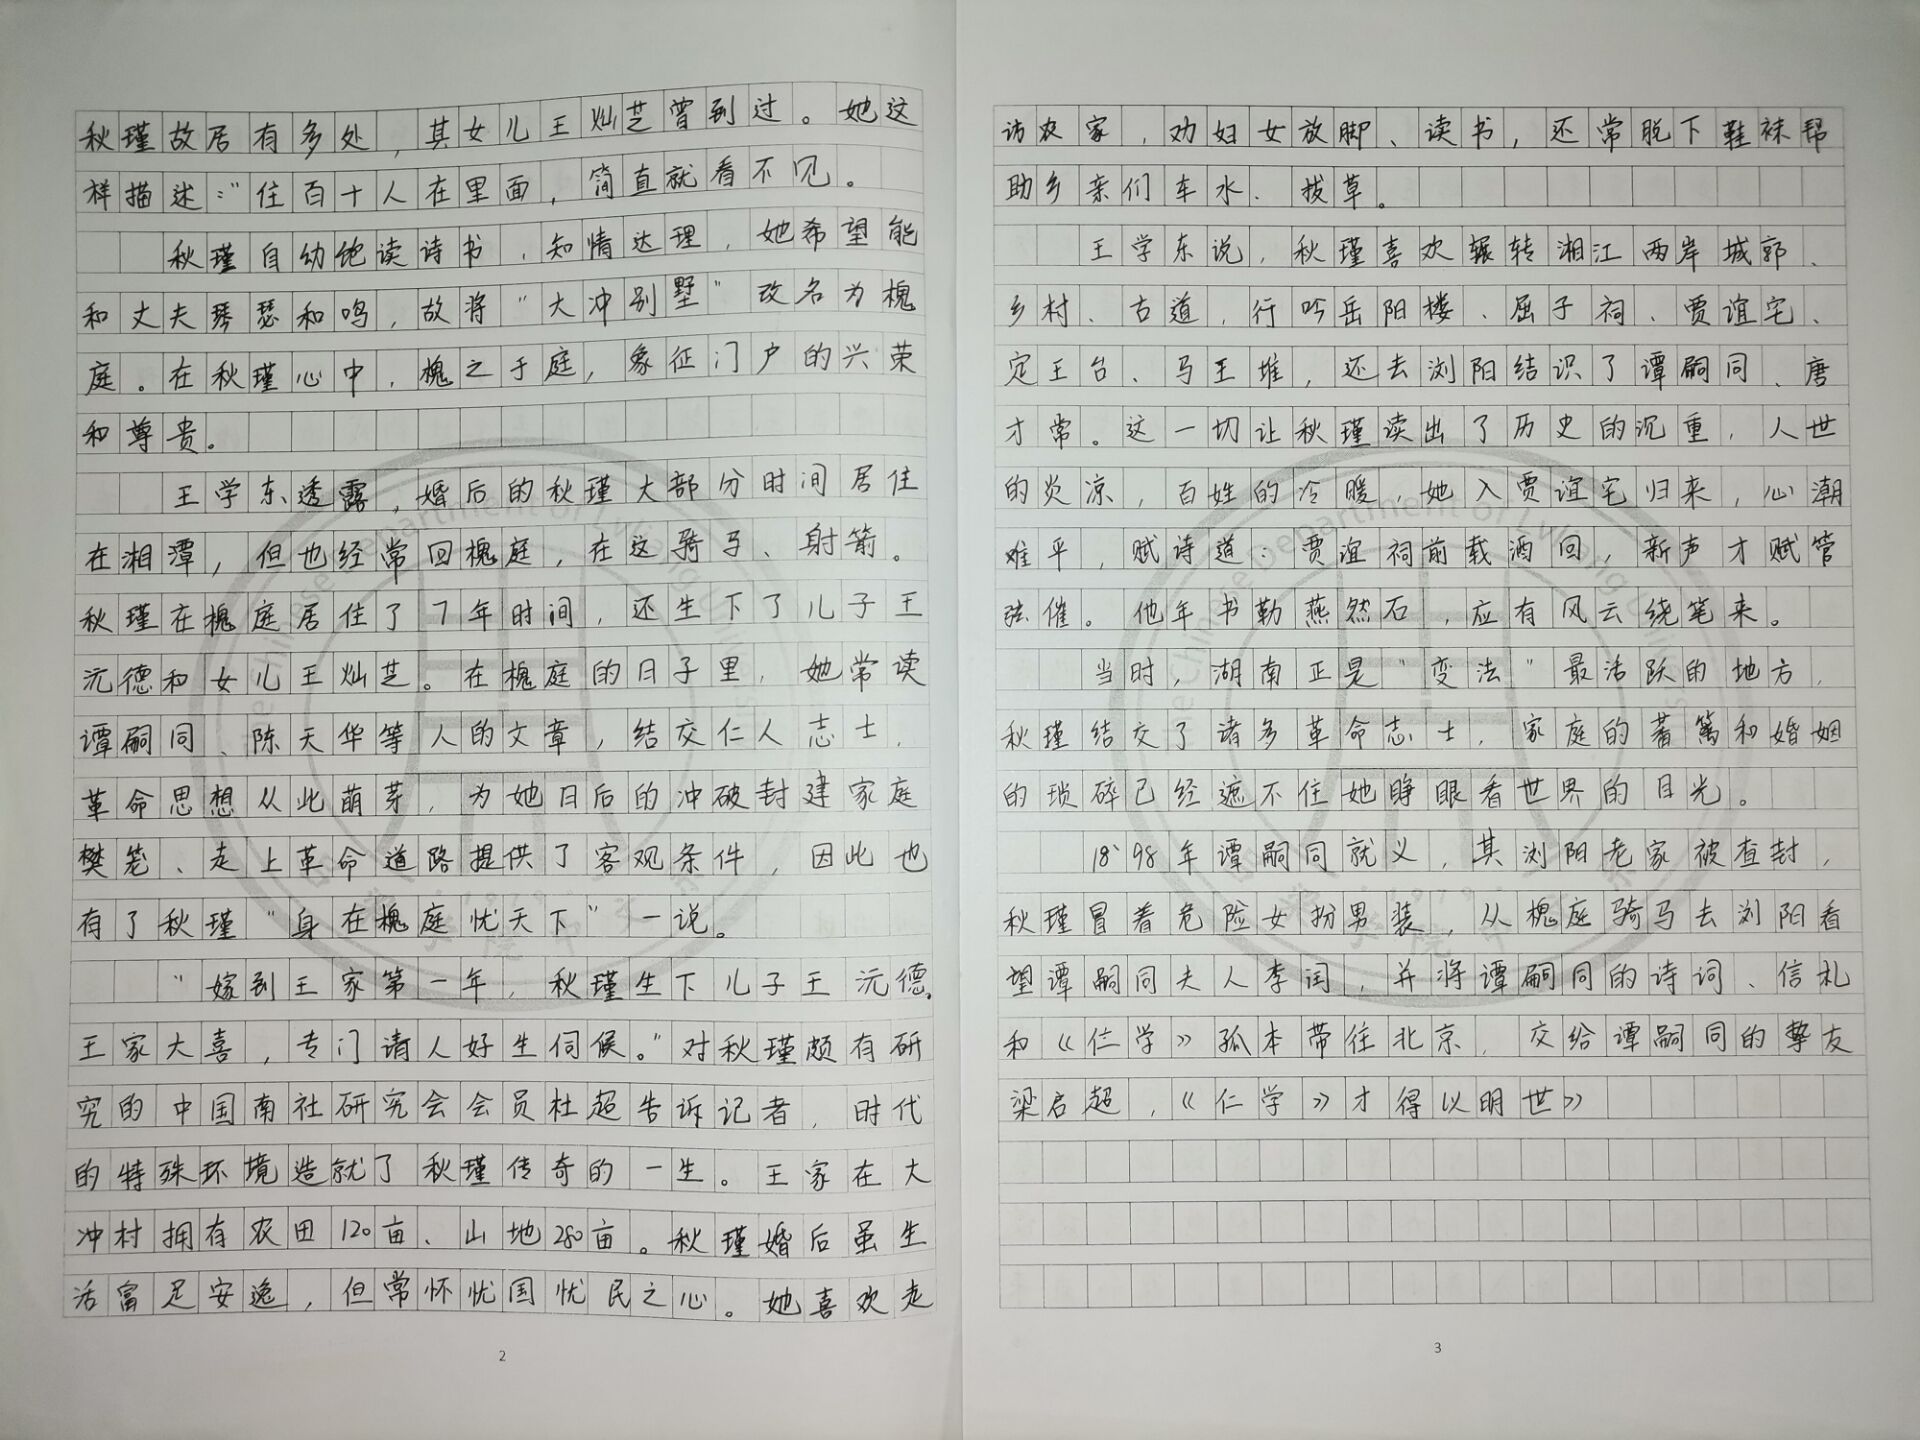 秋瑾故居有多处，其女儿王灿芝曾到过。她这
样描述：“住百十人在里面，简直就看不见。
秋瑾自幼饱读诗书，知情达理，她希望能
和丈夫琴瑟和鸣，故将“大冲别墅”改名为槐
庭。在秋瑾心中，槐之于庭，象征门户的兴荣
和尊贵。
王学东透露，婚后的秋瑾大部分时间居住
在湘潭，但也经常回槐庭，在这骑马、射箭。
秋瑾在槐庭居住了7年时间，还生下了儿子王
沅德和女儿王灿芝。在槐庭的日子里，她常读
谭嗣同、陈天华等人的文章，结交仁人志士，
革命思想从此萌芽，为她日后的冲破封建家庭
樊笼、走上革命道路提供了客观条件，因此也
有了秋瑾“身在槐庭忧天下”一说。
“嫁到王家第一年，秋瑾生下儿子王沅德，
王家大喜，专门请人好生伺候。”对秋瑾颇有研
究的中国南社研究会会员杜超告诉记者，时代
的特殊环境造就了秋瑾传奇的一生。王家在大
冲村拥有农田120亩、山地280亩。秋瑾婚后虽生
活富足安逸，但常怀忧国忧民之心。她喜欢走
访农家，劝妇女放脚、读书，还常脱下鞋袜帮
助乡亲们车水、拔草。
王学东说，秋瑾喜欢辗转湘江两岸城郭、
乡村、古道，行吟岳阳楼、屈子祠、贾谊宅、
定王台、马王堆，还去浏阳结识了谭嗣同、唐
才常。这一切让秋瑾读出了历史的沉重，人世
的炎凉，百姓的冷暖，她入贾谊宅归来，心潮
难平，赋诗道：贾谊祠前载酒回，新声才赋管
弦催。他年书勒燕然石，应有风云绕笔来。
当时，湖南正是“变法”最活跃的地方，
秋瑾结交了诸多革命志士，家庭的蕃篱和婚姻
的琐碎已经遮不住她睁眼看世界的目光。
1898年谭嗣同就义，其浏阳老家被查封，
秋瑾冒着危险女扮男装，从槐庭骑马去浏阳看
望谭嗣同夫人李闰，并将谭嗣同的诗词、信札
和《仁学》孤本带往北京，交给谭嗣同的挚友
梁启超，《仁学》才得以明世》
2
3